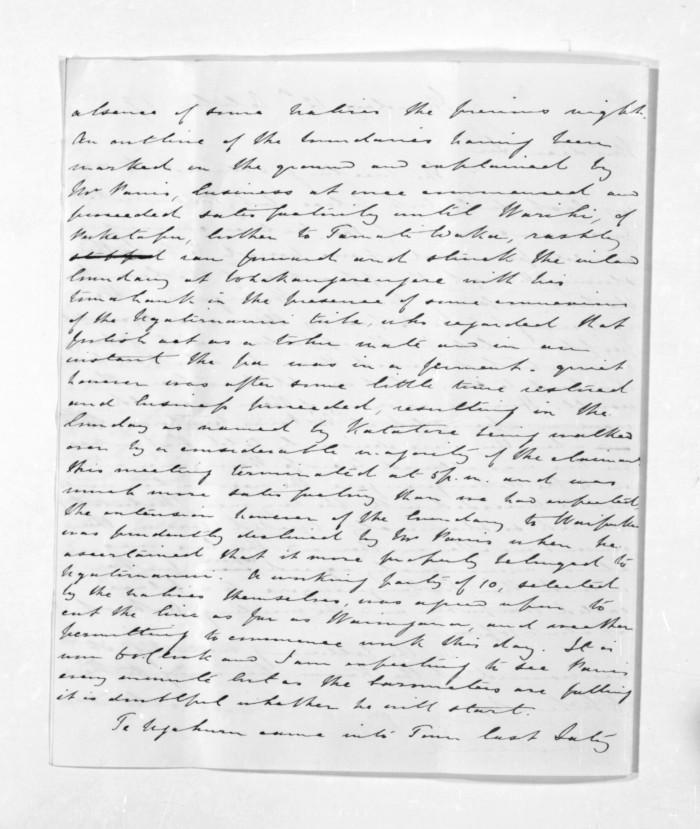 absence of some natives the previous night.
An outline of the boundaries having been
marked in the ground and explained by
Mr Parris, business at once commenced and
proceeded satisfactorily until Wariki, of
brother to Tamati Waka, rashly
ran forward and struck the inland
boundary at Whakangerengere with his
tomahawk in the presence of some
of the Ngatimaru tribe, who regarded that
foolish act as a and in an
instant the pa was in a ferment. quiet
however was after some little time restored
and business proceeded, resulting in the
boundary as named by Katatore being walked
over by a considerable majority of the claimants.
This meeting terminated at 5 p.m. and was
much more satisfactory than we had expected,
the extension however of the boundary to
was prudently declined by Mr Parris when he
ascertained that it more properly belonged to
Ngatimaru. A working party of 10, selected
by the natives themselves was agreed upon to
cut the line as far as and weather
permitting to commence work this day. It is
now o'clock and I am expecting to see Parris
every minute but as the barometers are falling
it is doubtful whether he will start.
Te Ngahuru came into Town last Satdy